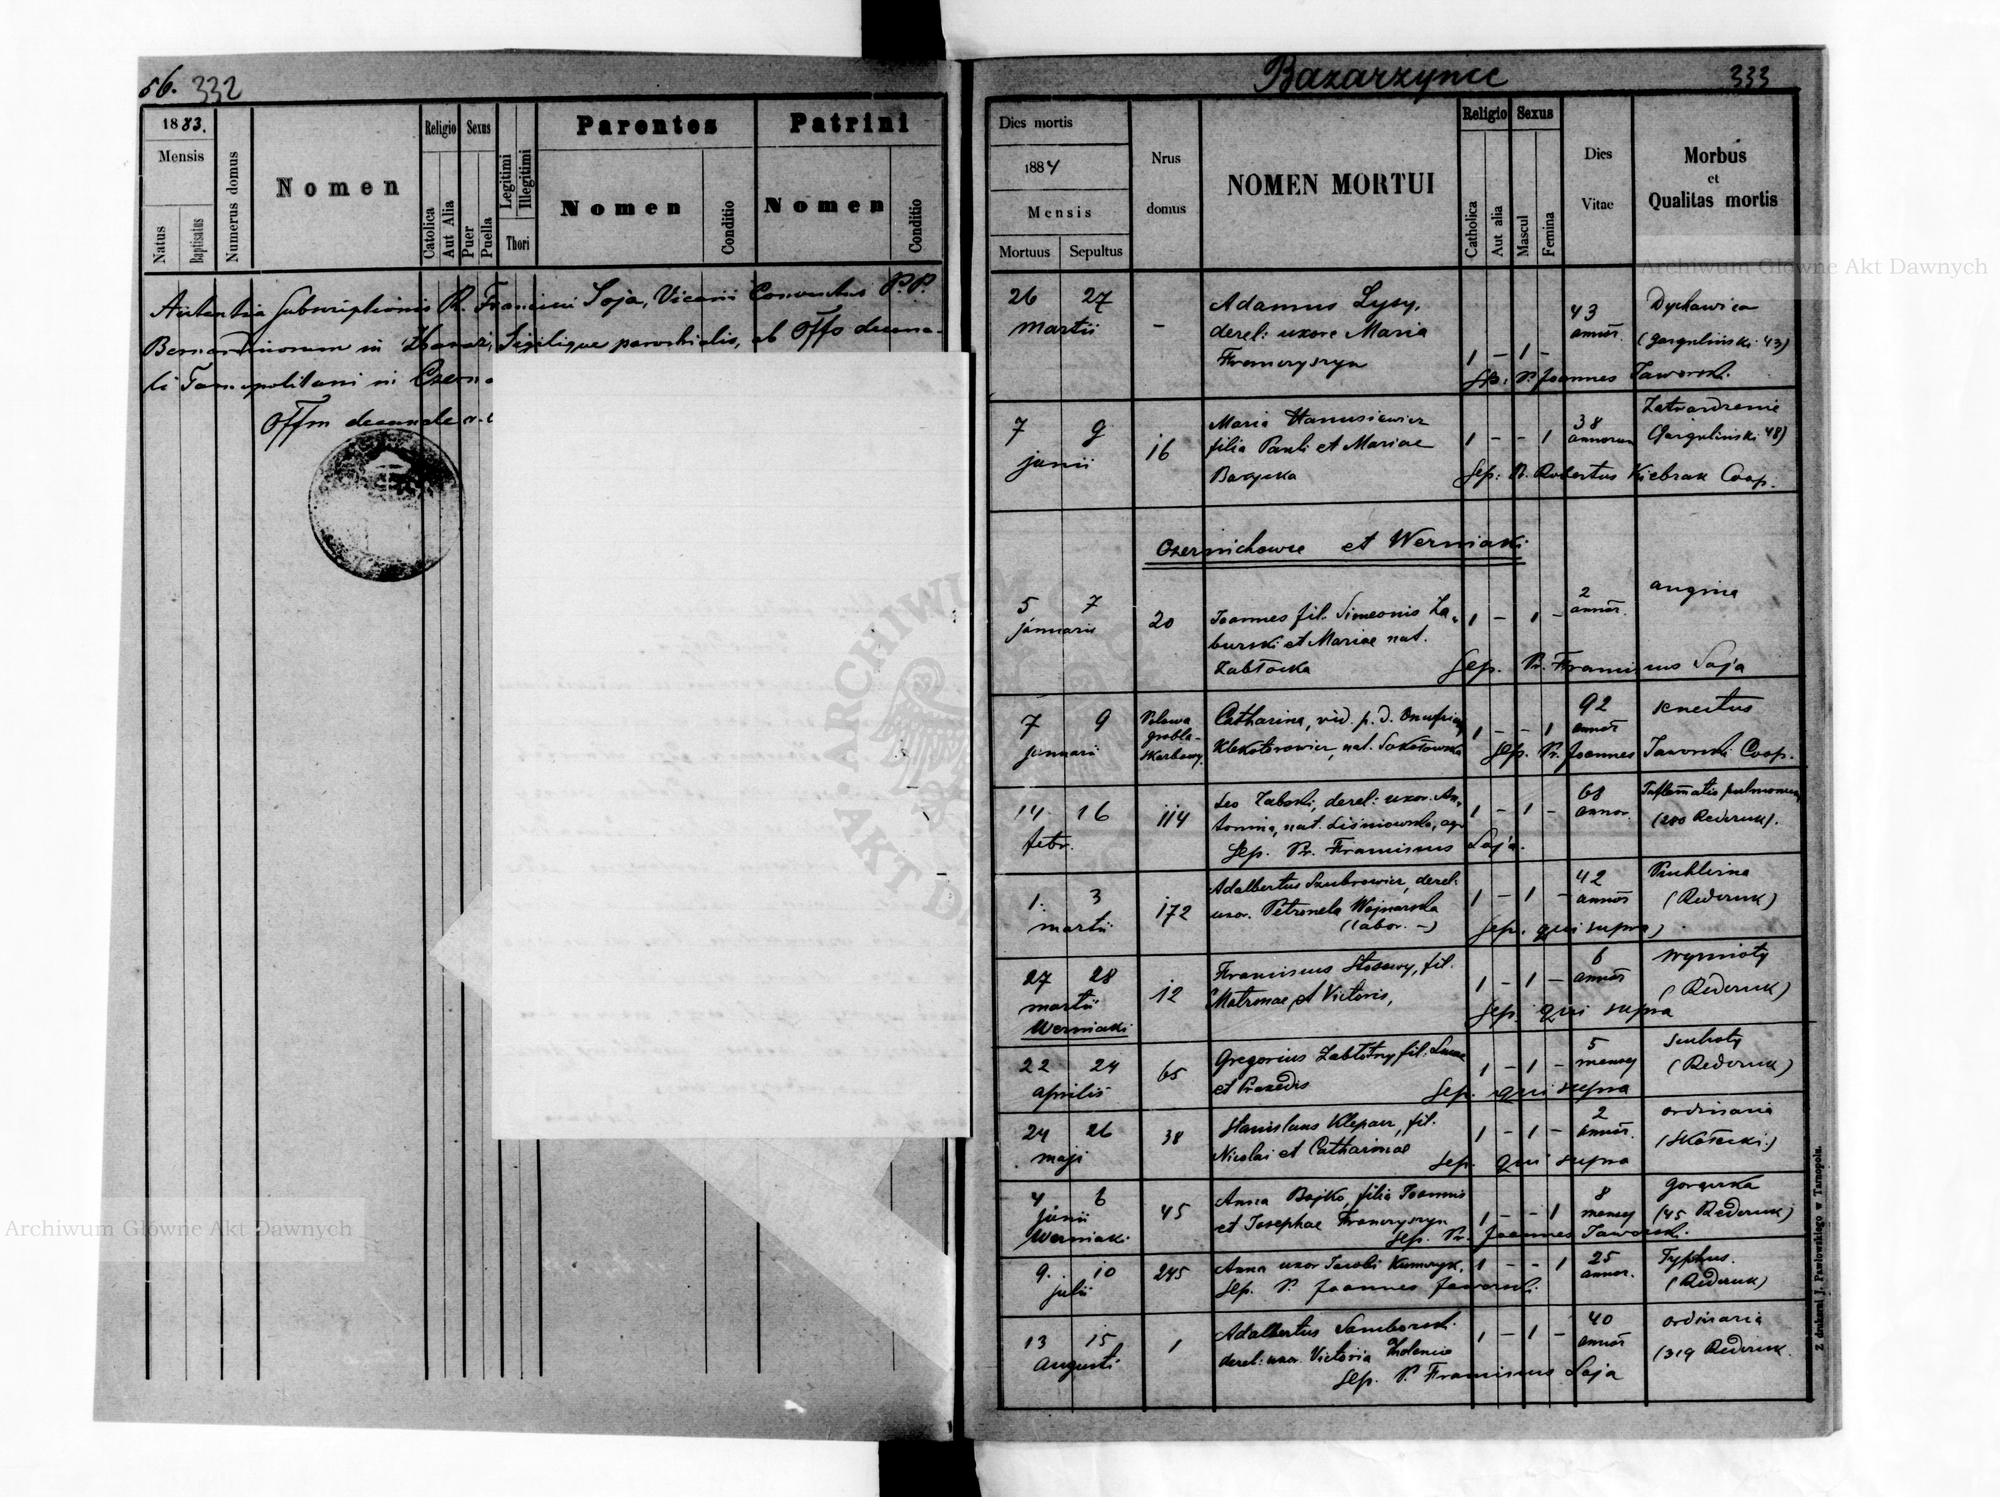 56. 332
1883.
Mensis
Natus
Baptisatus
Numerus domus
Nomen
Religio
Catolica
Aut Alia
Sexus
Puer
Puella
Legitimi
Illegitimi
Thori
Parentes
Nomen
Conditio
Patrini
Nomen
Conditio
Subscriptionis R. Francisci Soja, Vicarii Conventus P.P.
Bernardinorum in Sigilique parochialis, ab Offo decana-
li Tarnopolitani in
Offm decanale
Bazarzynce 333
Dies mortis
1884
Mensis
Mortuus
Sepultus
Nrus
domus
NOMEN MORTUI
Religio
Catholica
Aut alia
Sexus
Mascul
Femina
Dies
Vitae
Morbus
et
Qualitas mortis
26 27 Adamus Lysy, 43 Dychawica
martii – derel: uxore Maria annor. (Gargulinski 43)
Franczyszyn 1 – 1 –
Sep. P. Joannes Jaworski.
7 9 16 Maria Hanusiewicz 38 Zatwardzenie
junii filia Pauli et Mariae 1 – – 1 annorum (Gargulinski 48)
Sep: P. Robertus Kiebrak Coop.
Czernichowce et Werniaki
5 7 20 Joannes fil. Simeonis Za- 1 – 1 – 2 angina
januarii burski et Mariae nat. annor.
Zabłocka Sep. Pr. Franciscus Soja
7 9 Catharina, vid. p. d. Onufrium 92 senectus
januarii grobla nat. Sokołowska 1 – – 1 annor
Skarbowy. Sep. Pr. Joannes Jaworski Coop.
14 16 114 Leo Zaboski, derel: uxor. An- 1 – 1 – 68 Inflamatio pulmonum
febr. tonina, nat. Liśniowska, agr. annor. (200 Rederuk).
Sep. Pr. Franciscus Soja.
1. 3 172 Adalbertus Szubrowicz, derel: 1 – 1 – 42 Puchlina
martii uxor. Petronela Wojnarska annor (Rederuk)
(labor. –) Sep. qui supra
27 28 12 Franciscus fil. 1 – 1 – 6 Wymioty
martii Matronae et Victoris, annor (Rederuk)
Werniaki Sep. qui supra
22 24 65 Gregorius Zabłotny fil: Lucae 1 – 1 – 5 Suchoty
aprilis et Praxedis menses (Rederuk)
Sep. qui supra
24 26 38 Stanislaus Klepacz, fil. 1 – 1 – 2 ordinaria
maji Nicolai et Catharinae annor. (Skotecki)
Sep. qui supra
4 6 45 Anna Bojko, filia Joannis 1 – – 1 8 gorączka
junii et Josephae Franczyszyn menses (45 Rederuk)
Werniaki. Sep. Pr. Joannes Jaworski.
9. 10 245 Anna uxor Jacobi 1 – – 1 25 Typhus.
julii Sep. P. Joannes Jaworski. annor. (Rederuk)
13 15 1 Adalbertus Samborski 1 – 1 – 40 ordinaria
Augusti derel: uxor. Victoria annor (319 Rederuk.
Sep. P. Franciscus Soja
Z drukarni J. Pawłowskiego w Tarnopolu.
Archiwum Główne Akt Dawnych
Archiwum Główne Akt Dawnych
ARCHIWUM GŁÓWNE AKT DAWNYCH